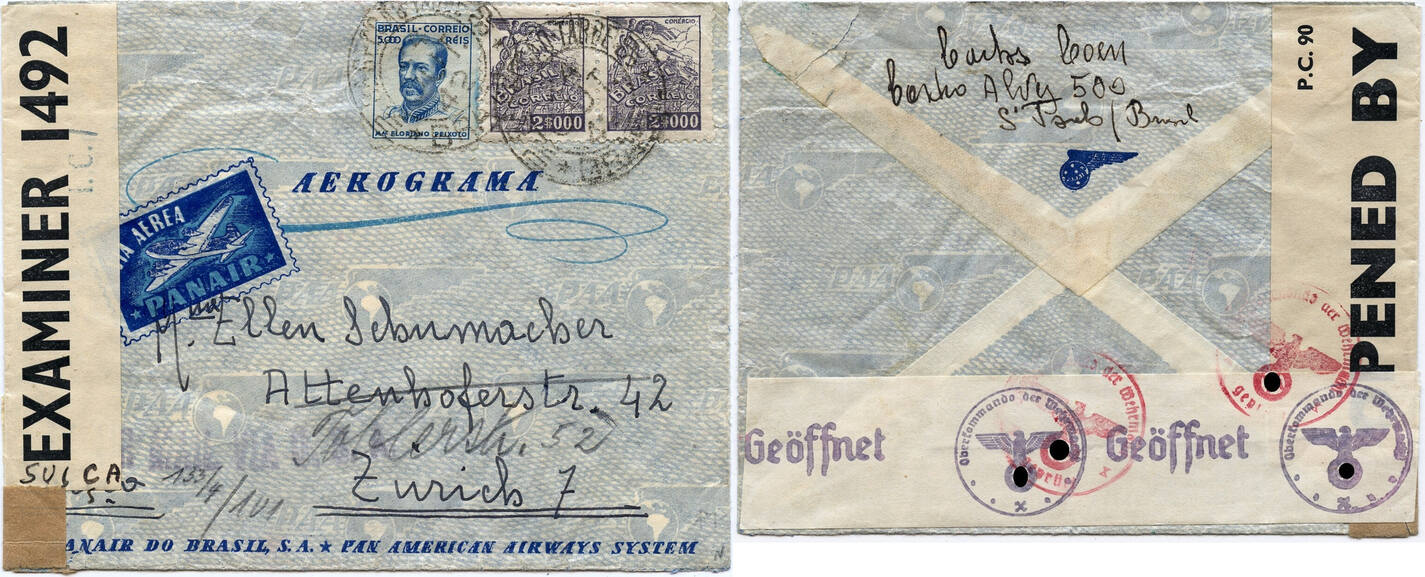 EXAMINER 1492
I.C./
BRASIL-CORREIO
500 REIS
MAL FLORIANO PEIXOTO
BRASIL
CORREIO
2$000
COMÉRCIO
BRASIL
CORREIO
2$000
AEROGRAMA
VIA AEREA
PANAIR
Ellen Schumacher
Attenhoferstr. 42
52
Zürich 7
153/4/101
PANAIR DO BRASIL, S.A. ★ PAN AMERICAN AIRWAYS SYSTEM
Carlos Coen
500
S. Paulo / Brasil
P.C. 90
PENED BY
Geöffnet
Oberkommando der Wehrmacht
Geöffnet
Oberkommando der Wehrmacht